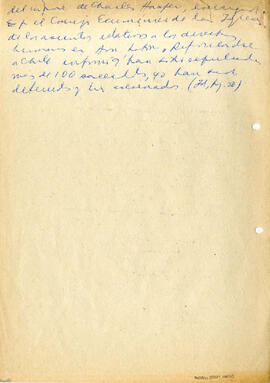 del informe de Charles Harper, encargado
por el Consejo Ecuménico de las Iglesias
de los asuntos relativos a los derechos
humanos en Am. Latina, Refiriéndose
a Chile informó han sido expulsados
mas de 100 sacerdotes, 40 han sido
detenidos y tres asesinados